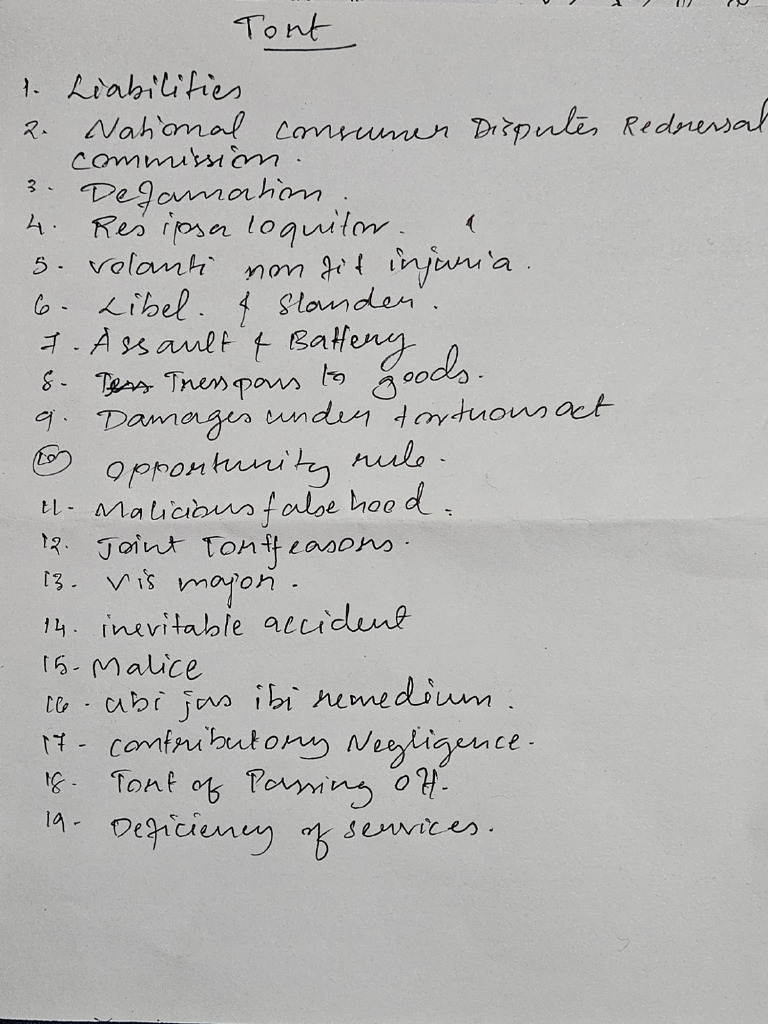 Tort
1. Liabilities
2. National Consumer Disputes Redressal
Commission.
3. Defamation.
4. Res ipsa loquitor.
5. volanti non fit injuria.
6. Libel. & Slander.
7. Assault & Battery
8. Tresspass to goods.
9. Damages under tortuous act
10 opportunity rule.
11- Malicious false hood.
12. Joint Tortfeasors.
13. vis major.
14. inevitable accident
15- Malice
16. ubi jus ibi remedium.
17- contributory Negligence.
18- Tort of Passing off.
19- Deficiency of services.